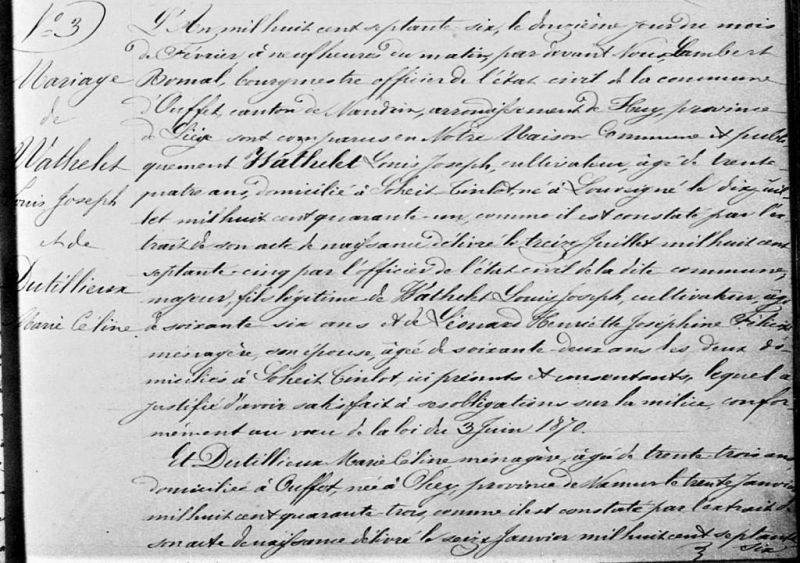 N° 3
Mariage
de
Wathelet
Louis Joseph
et de
Dutillieux
Marie Céline
L'An mil huit cent septante six, le douzième jour du mois
de Février à neuf heures du matin, par devant Nous, Lambert
Bomal, bourgmestre officier de l'état civil de la commune
d'Ouffet, canton de Nandrin, arrondissement de Huy, province
de Liége sont comparus en Notre Maison Commune et publi
quement Wathelet Louis Joseph, cultivateur, âgé de trente
quatre ans, domicilié à Soheit Tinlot, né à Louveigné le dix juil
let mil huit cent quarante-un, comme il est constaté par l'ex
trait de son acte de naissance délivré le treize Juillet mil huit cent
septante-cinq par l'officier de l'état civil de la dite commune,
majeur, fils légitime de Wathelet Louis Joseph, cultivateur, âgé
de soixante six ans et de Léonard Henriette Joséphine Félicité
ménagère, son épouse, âgée de soixante-deux ans les deux do
miciliés à Soheit Tinlot, ici présents et consentants, lequel a
justifié d'avoir satisfait à ses obligations sur la milice, confor
mément au vœu de la loi du 3 Juin 1870.
Et Dutillieux Marie Céline ménagère, âgée de trente-trois ans,
domiciliée à Ouffet, née à , province de Namur le trente Janvier
mil huit cent quarante-trois, comme il est constaté par l'extrait de
son acte de naissance délivré le seize Janvier mil huit cent septante
six